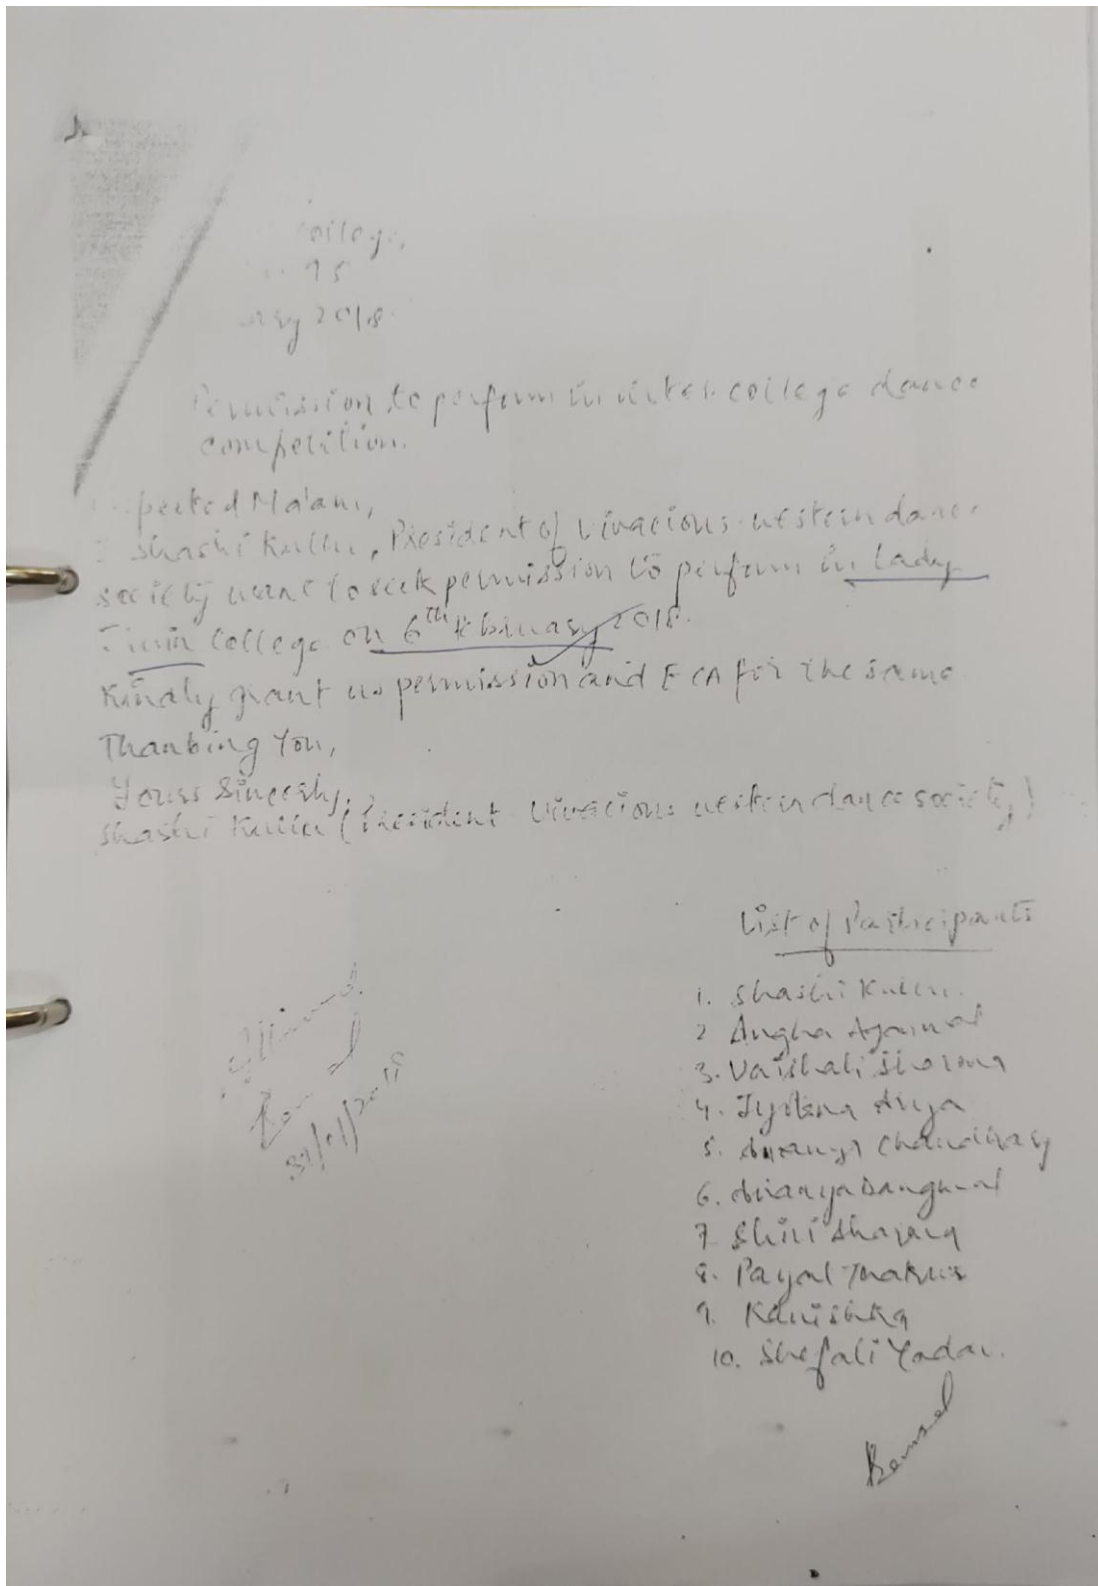 ollege,
95
ary 2018
Permission to perform in inter college dance
competition.
pected Ma'am,
Shashi Kullu, President of Vivacious western dance
society want to seek permission to perform in Lady
College on 6th February 2018.
Kindly grant us permission and ECA for the same
Thanking You,
Yours Sincerly,
Shashi Kullu (President Vivacious western dance society)
List of Participants
1. Shashi Kullu.
2 Angha Agarwal
3. Vaishali Sharma
4. Jyotsna Arya
5. Chaudhary
6. Ananya Dangwal
7 Shiri Sharma
8. Payal Thakur
9. Kanishka
10. Shefali Yadav.
Allowed
31/01/2018